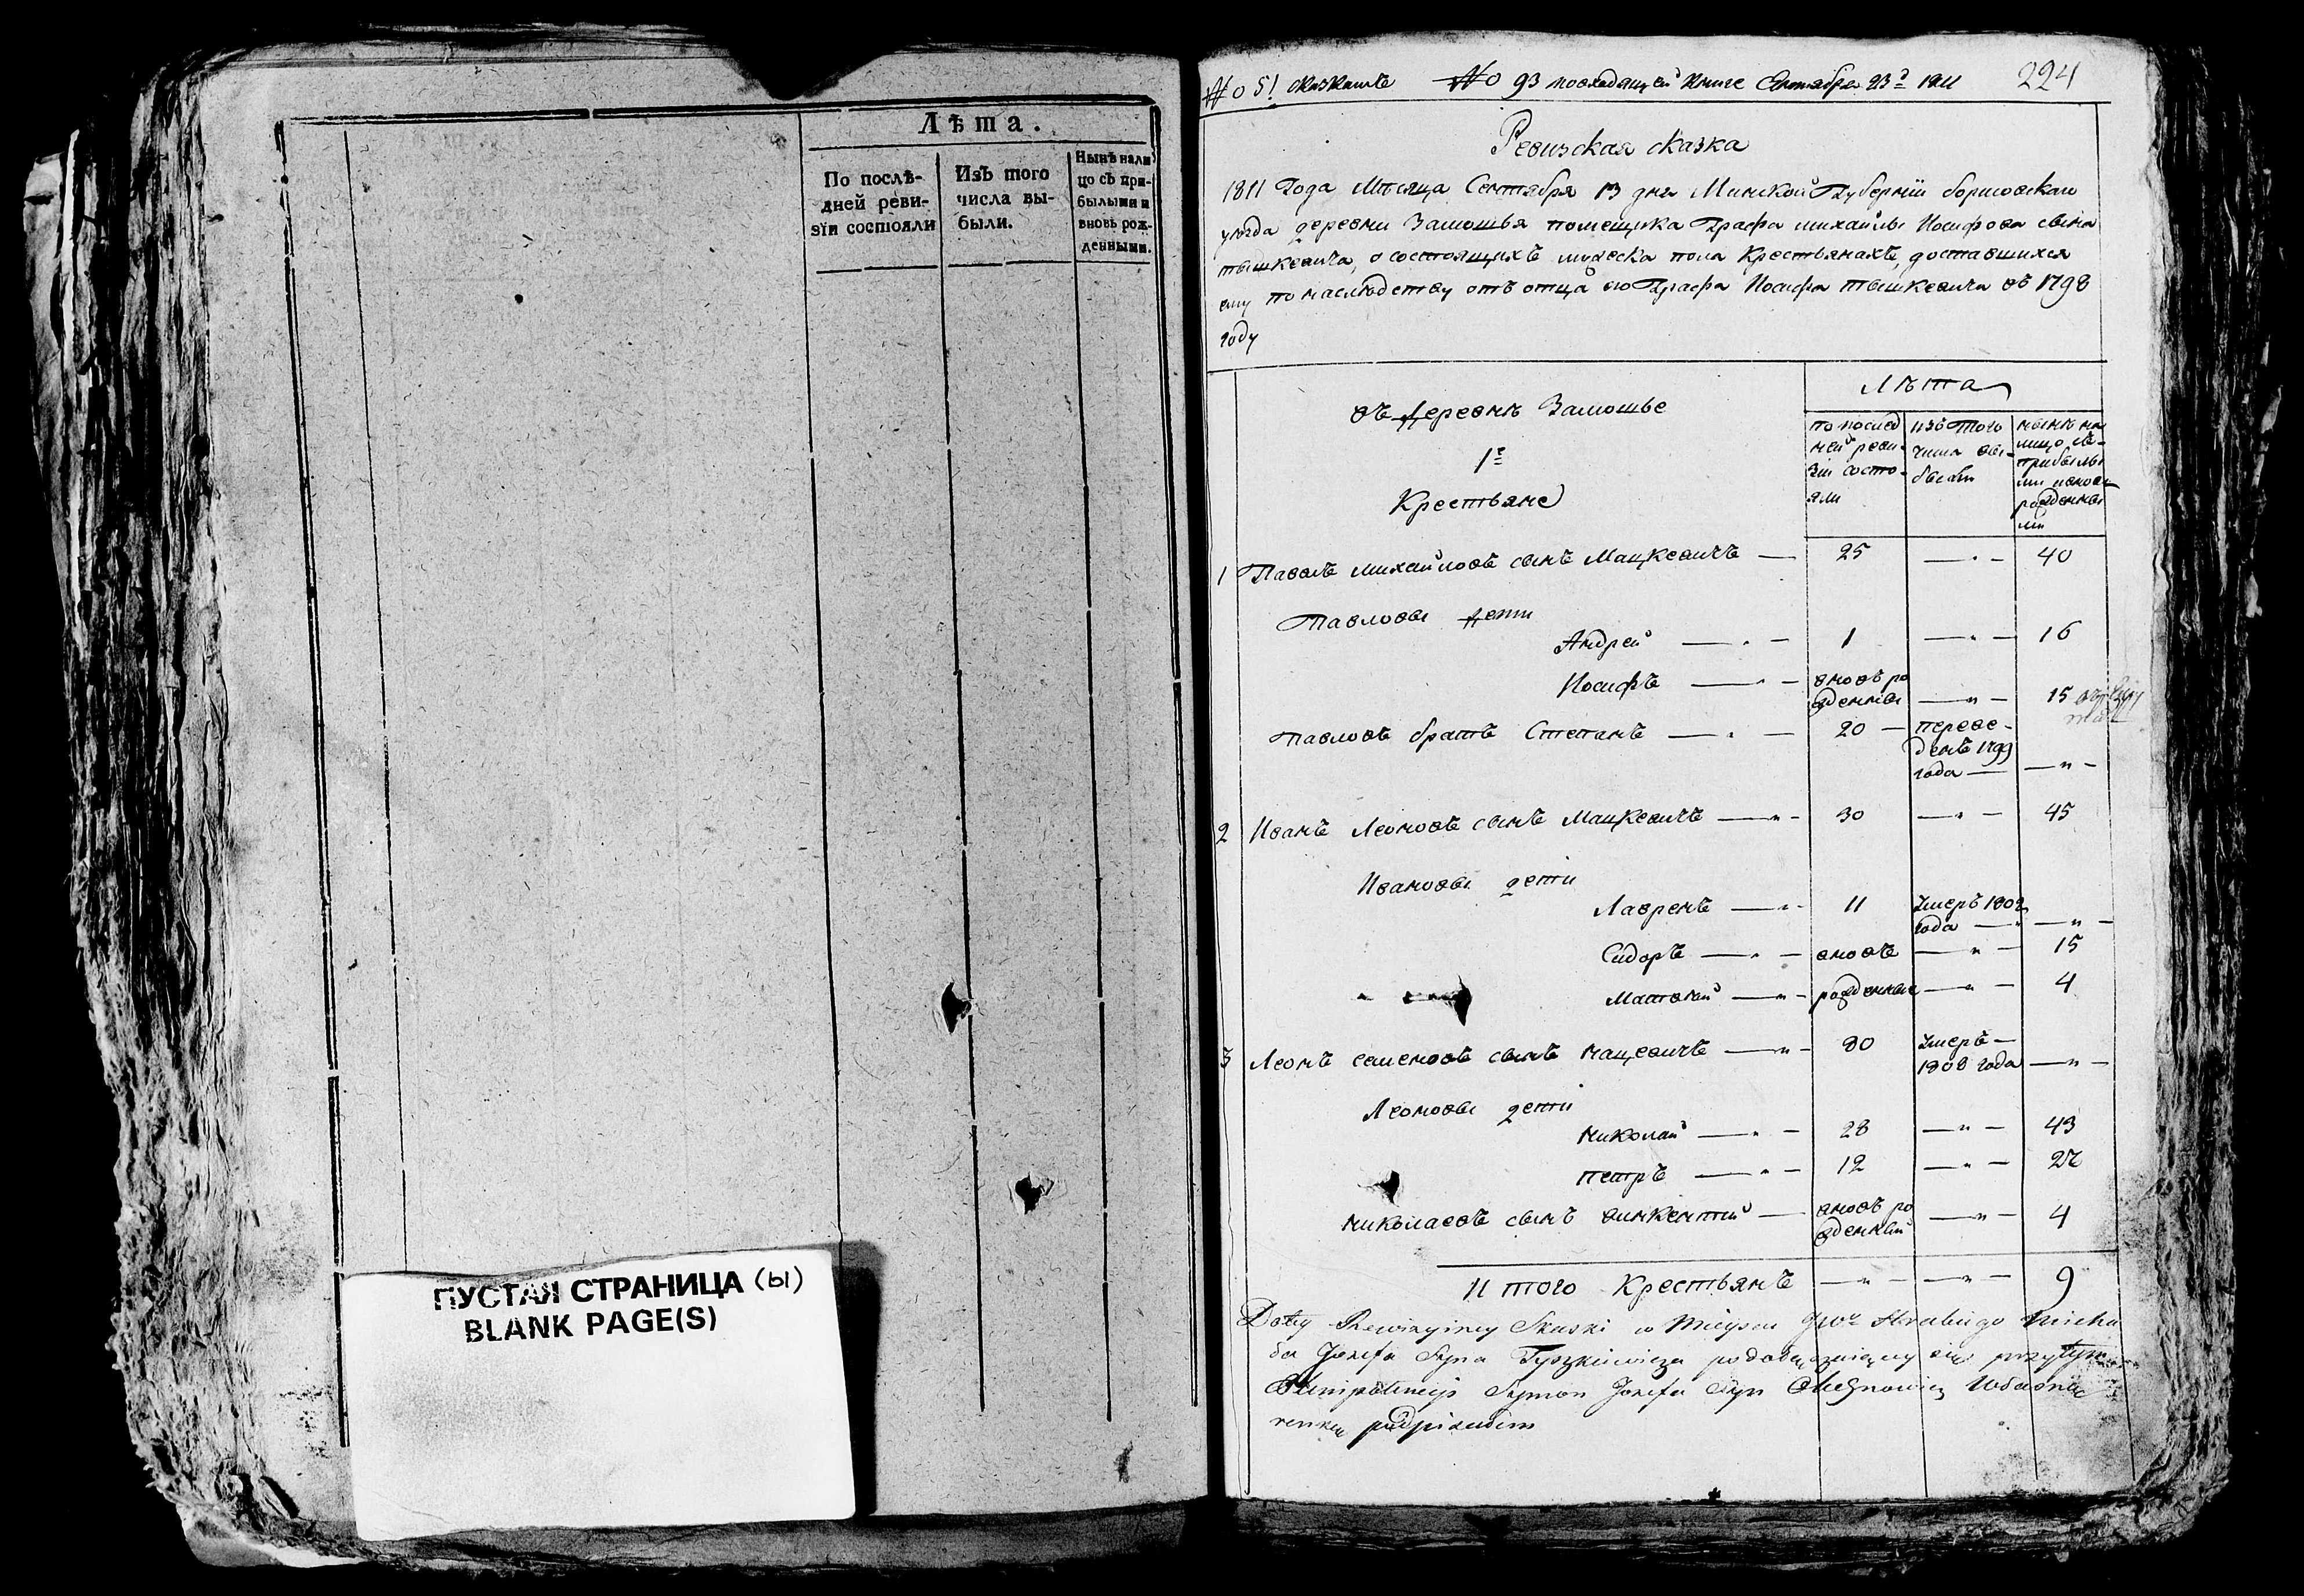 Лѣта.
По послѣ-
дней реви-
зіи состояли
Изъ того
числа вы-
были.
Нынѣ нали
цо съ при-
былыми и
вновь рож-
денными.
ПУСТАЯ СТРАНИЦА (ы)
BLANK PAGE(S)
№ 51 № 93 повходящей книге Сентября 23 1811 224
Ревизская сказка
1811 Года Мѣсяца Сентября 13 дня Минской Губерніи борисовскаго
уѣзда деревни Замошья помещика Графа михайлы Иосифова сына
тышкевича, о состоящихъ мужеска пола Крестьянахъ, доставшихся
ему по наслѣдству отъ отца его Графа Иосифа тышкевича въ 1798
году
въ Деревнѣ Замошье
1е
Крестьяне
Лѣта
по послед
ней реви-
зіи состо-
яли
изъ того
числа вы-
были
нынѣ на
лицо съ-
прибылы
ми и вновь
рожденны
ми
1 Павелъ михайловъ сынъ Мацкевичъ — 25 — 40
Павловы дети
Андрей — 1 — 16
Иосифъ — вновь ро
жденны — 15
Павловъ братъ Степанъ — 20 — переве-
денъ 1799
года —
2 Иванъ Леоновъ сынъ Мацкевичъ — 30 — 45
Ивановы дети
Лавренъ — 11 Умеръ 1802
года —
Сидоръ — вновь — 15
Матвей — рожденные — 4
3 Леонъ семеновъ сынъ мацевичъ — 80 Умеръ —
1808 года —
Леоновы дети
николай — 28 — 43
петръ — 12 — 27
николаевъ сынъ викентий — вновь ро
жденный — 4
Итого Крестьянъ — 9
Do tey Rewizyiney Skaski w Mieyscu Hrabiego Micha
ła Jozefa Syna Tyszkiewicza
Plenipotencyi Szymon Jozefa Syn własną
ręką podpisałem